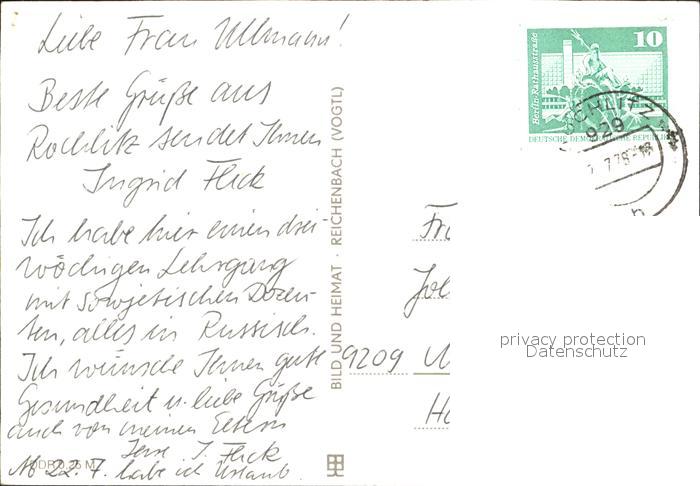 Liebe Frau Ullmann!
Beste Grüße aus
Rochlitz sendet Ihnen
Ingrid Flick
Ich habe hier einen drei-
wöchigen Lehrgang
mit sowjetischen Dozen-
ten, alles in Russisch.
Ich wünsche Ihnen gute
Gesundheit u. liebe Grüße
auch von meinen Eltern
Ihre I. Flick
Ab 22.7. habe ich Urlaub.
DDR 0,25 M
BILD UND HEIMAT · REICHENBACH (VOGTL)
Berlin-Rathausstraße
10
DEUTSCHE DEMOKRATISCHE REPUBLIK
929
7.78-18
Fr
9209
privacy protection
Datenschutz